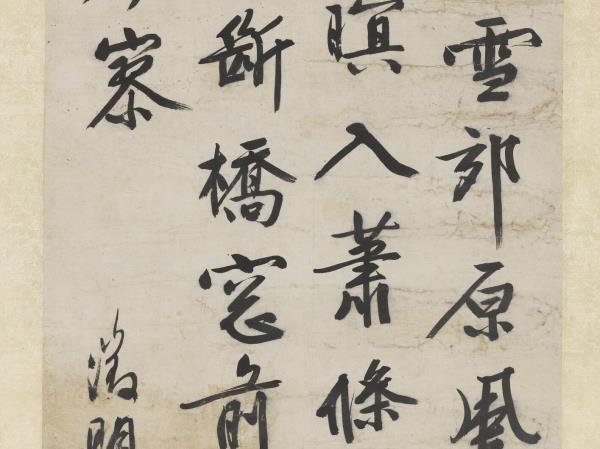 雪郊原風
暝入蕭條
斷橋窓前
徵明